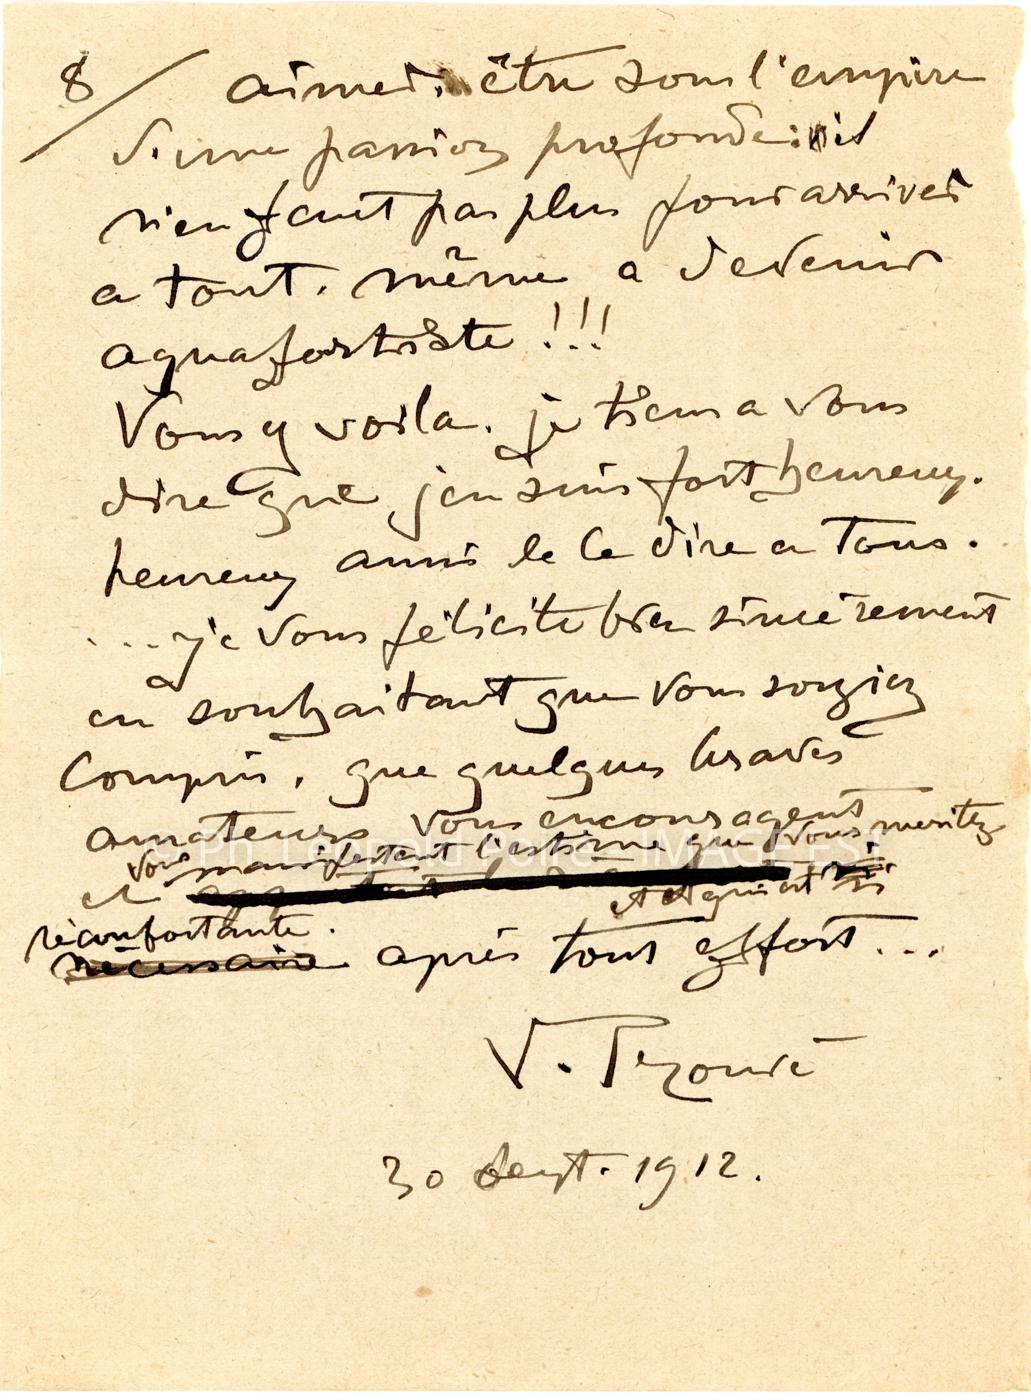 8/ aimer. être sous l'empire
d'une passion profonde: il
n'en faut pas plus pour arriver
a tout. même a devenir
aquafortiste !!!
Vous y voila. je tiens a vous
dire que j'en suis fort heureux.
heureux aussi de le dire a tous.
... je vous félicite bien sincèrement
en souhaitant que vous soyiez
compris. que quelques braves
amateurs vous encouragent
vous manifestent l'estime que vous meritez
et
et si
réconfortante.
nécessaire après tout effort...
V. Prouvé
30 Sept. 1912.